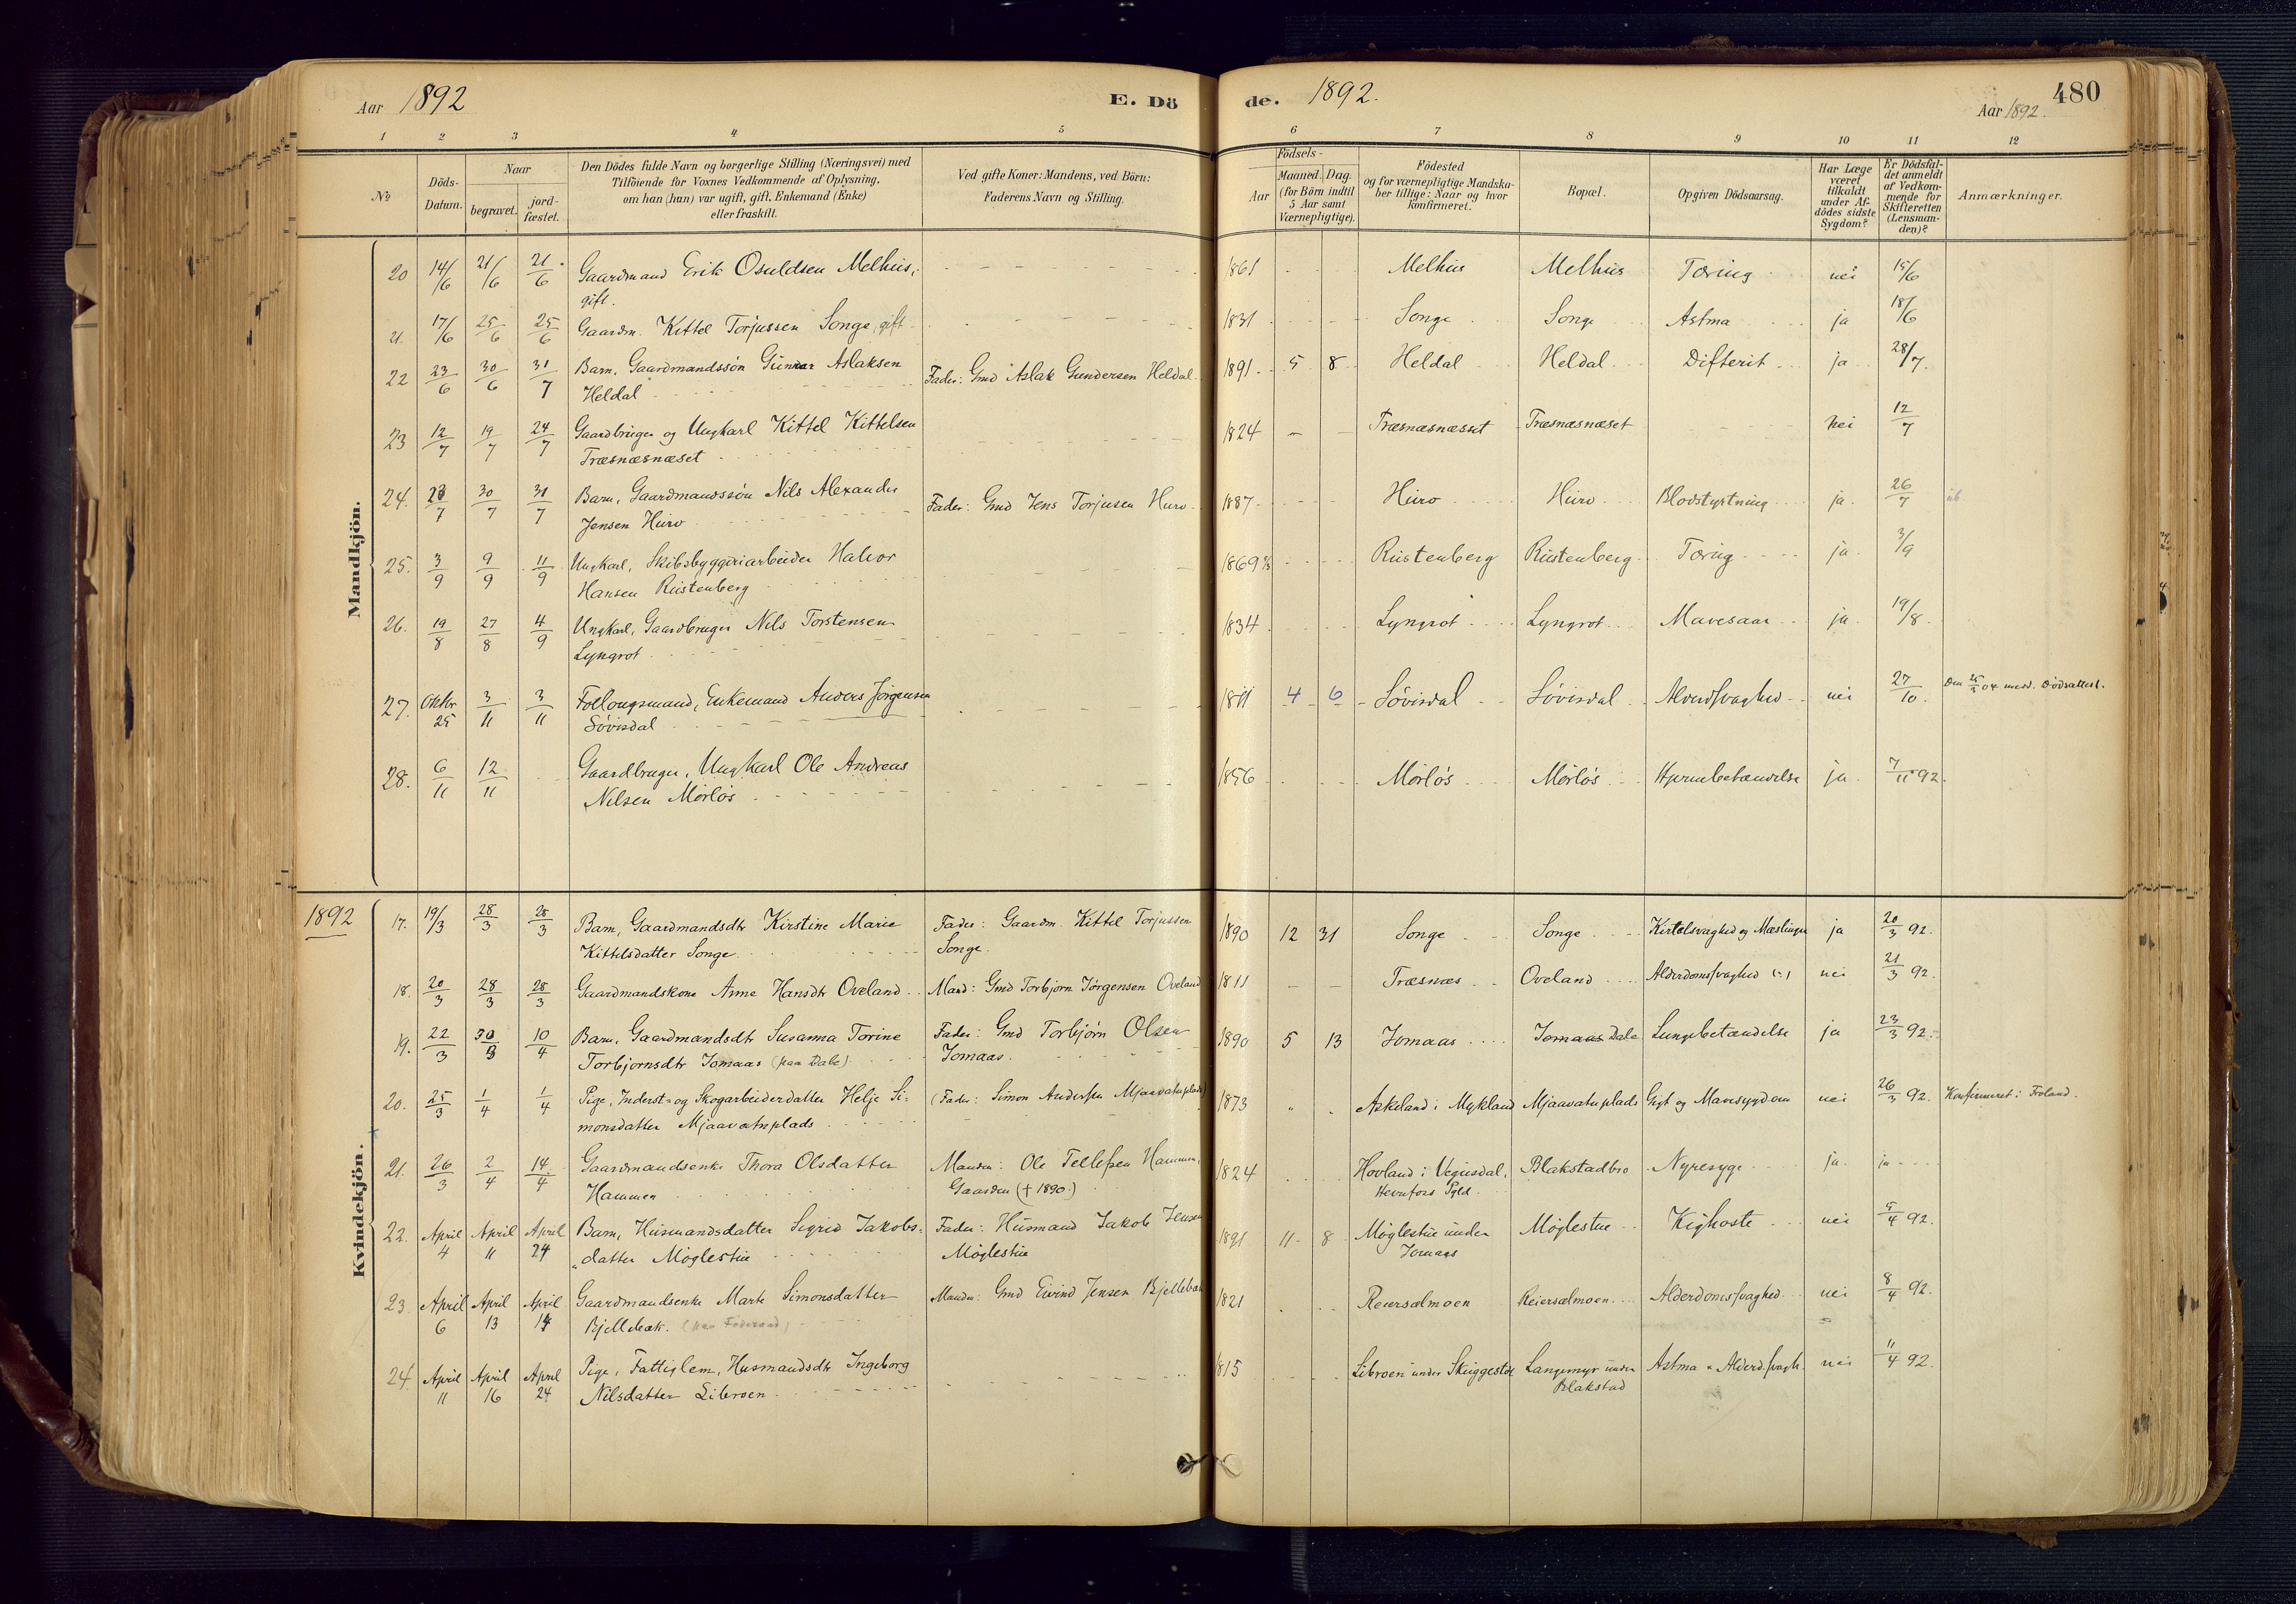 Aar 1892
E. Dö
de. 1892.
480
Aar 1892.
1 2 3 4 5 6 7 8 9 10 11 12
No
Döds-
Datum.
Naar
begravet.
jord-
fæstet.
Den Dödes fulde Navn og borgerlige Stilling (Næringsvei) med
Tilföiende for Voxnes Vedkommende af Oplysning,
om han (hun) var ugift, gift, Enkemand (Enke)
eller fraskilt.
Ved gifte Koner: Mandens, ved Börn:
Faderens Navn og Stilling.
Födsels-
Aar
Maaned. Dag.
(for Börn indtil
5 Aar samt
Værnepligtige).
Födested
og for værnepligtige Mandska-
ber tillige: Naar og hvor
konfirmeret.
Bopæl.
Opgiven Dödsaarsag.
Har Læge
været
tilkaldt
under Af-
dödes sidste
Sygdom?
Er Dödsfal-
det anmeldt
af Vedkom-
mende for
Skifteretten
(Lensman-
den)?
Anmærkninger.
Mandkjön.
20 14/6 21/6 21/6 Gaardmand Erik Osuldsen Melhus, 1861 Melhus Melhus Tæring nei 15/6
gift.
21. 17/6 25/6 25/6 Gaardm. Kittel Torjussen Songe, gift 1831 Songe Songe Astma ja 18/6
22 23/6 30/6 31/7 Barn, Gaardmandssøn Gunnar Aslaksen Fader: Gmd Aslak Gundersen Heldal 1891 5 8 Heldal Heldal Difterit ja 28/7.
Heldal
23 12/7 19/7 24/7 Gaardbruger og Ungkarl Kittel Kittelsen 1824 Træsnæsnæsset Træsnæsnæset nei 12/7
Træsnæsnæset
24. 23/7 30/7 31/7 Barn, Gaardmandssøn Nils Alexander Fader: Gmd Jens Torjusen Huro 1887 Huro Huro Blodstyrtning ja. 26/7
Jensen Huro
25. 3/9 9/9 11/9 Ungkarl, Skibsbyggeriarbeider Halvor 1869 Rustenberg Rustenberg Tæring ja. 3/9
Hansen Rustenberg
26. 19/8 27/8 4/9 Ungkarl, Gaardbruger Nils Torstensen 1834 Lyngrot Lyngrot Mavesaar ja 19/8.
Lyngrot
27. Oktbr 25 3/11 3/11 Følaugsmand, Enkemand Anders Jörgensen 1811 4 6 Løvisdal Løvisdal Alderdsvaghed nei 27/10. Den 25/3 04 medd. Dödsattest.
Løvisdal
28. 6/11 12/11 Gaardbruger, Ungkarl Ole Andreas 1856 Mörlös Mörlös Hjernebetændelse ja 7/11 92.
Nilsen Mörlös
1892
Kvindekjön.
17. 19/3 28/3 28/3 Barn, Gaardmandsdtr Kirstine Marie Fader: Gaardm. Kittel Torjussen 1890 12 31 Songe Songe Kirtelsvaghed og Mæslinger ja 20/3 92.
Kittelsdatter Songe Songe.
18. 20/3 28/3 28/3 Gaardmandskone Anne Hansdtr Oveland Mand: Gmd Torbjørn Jörgensen Oveland 1811 Træsnæs Oveland Alderdomssvaghed nei 21/3 92.
19. 22/3 30/3 10/4 Barn, Gaardmandsdtr Susanna Torine Fader: Gmd Torbjørn Olsen 1890 5 13 Jomaas Jomaas Dale Lungebetændelse ja 23/3 92.
Torbjørnsdtr Jomaas (paa Dale) Jomaas.
20. 25/3 1/4 1/4 Pige, Inderst- og Skogarbeiderdatter Helje Si- (Fader: Simon Andersen Mjaavatnplads) 1873 Askeland i Mykland Mjaavatnplads Gigt og Mavesygdom nei 26/3 92. Konfirmeret i Froland.
monsdatter Mjaavatnplads
21. 26/3 2/4 14/4 Gaardmandsenke Thora Olsdatter Manden: Ole Tellefsen Hammen, 1824 Hovland i Vegusdal, Blakstadbro Nyresyge ja. ja
Hammen Gaarden († 1890.) Herefoss Pgld.
22. April 4 April 11 April 24 Barn, Husmandsdatter Sigrid Jakobs- Fader: Husmand Jakob Jensen 1891 11 8 Møglestue under Møglestue Kighoste nei 5/4 92.
datter Møglestue Møglestue Jomaas
23. April 6 April 13 April 14 Gaardmandsenke Marte Simonsdatter Manden: Gmd Eivind Jensen Bjellebæk 1821 Reiersælmoen Reiersælmoen Alderdomssvaghed nei 8/4 92.
Bjellebæk.
24. April 11 April 16 April 24 Pige, Fattiglem, Husmandsdtr Ingeborg 1815 Libroen under Skuggestøl Langemyr under Astma & Alderd.svagh. nei 11/4 92.
Nilsdatter Libroen Blakstad